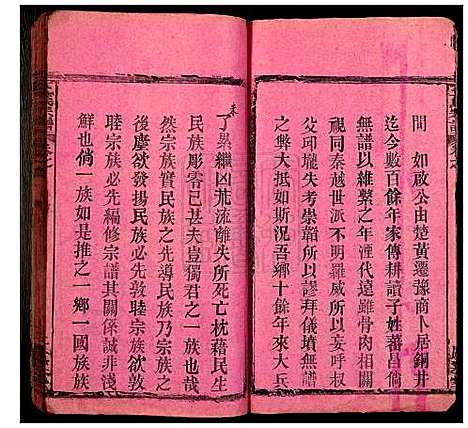 間　如啟公由楚黃遷豫商卜居銅井
迄今數百餘年家傳耕讀子姓蕃昌倘
無譜以維繫之年湮代遠雖骨肉相關
視同秦越世派不明羅威所以妄呼叔
父邱壠失考崇韜所以謬拜儀墳無譜
之弊大抵如斯況吾鄉十餘年來大兵
未
了累繼凶荒流離失所死亡枕藉民生
民族彫零已甚夫豈獨君之一族也哉
然宗族實民族之先導民族乃宗族之
後塵欲發揚民族必先敦睦宗族欲敦
睦宗族必先編修宗譜其關係誠非淺
鮮也倘一族如是推之一鄉一國族族